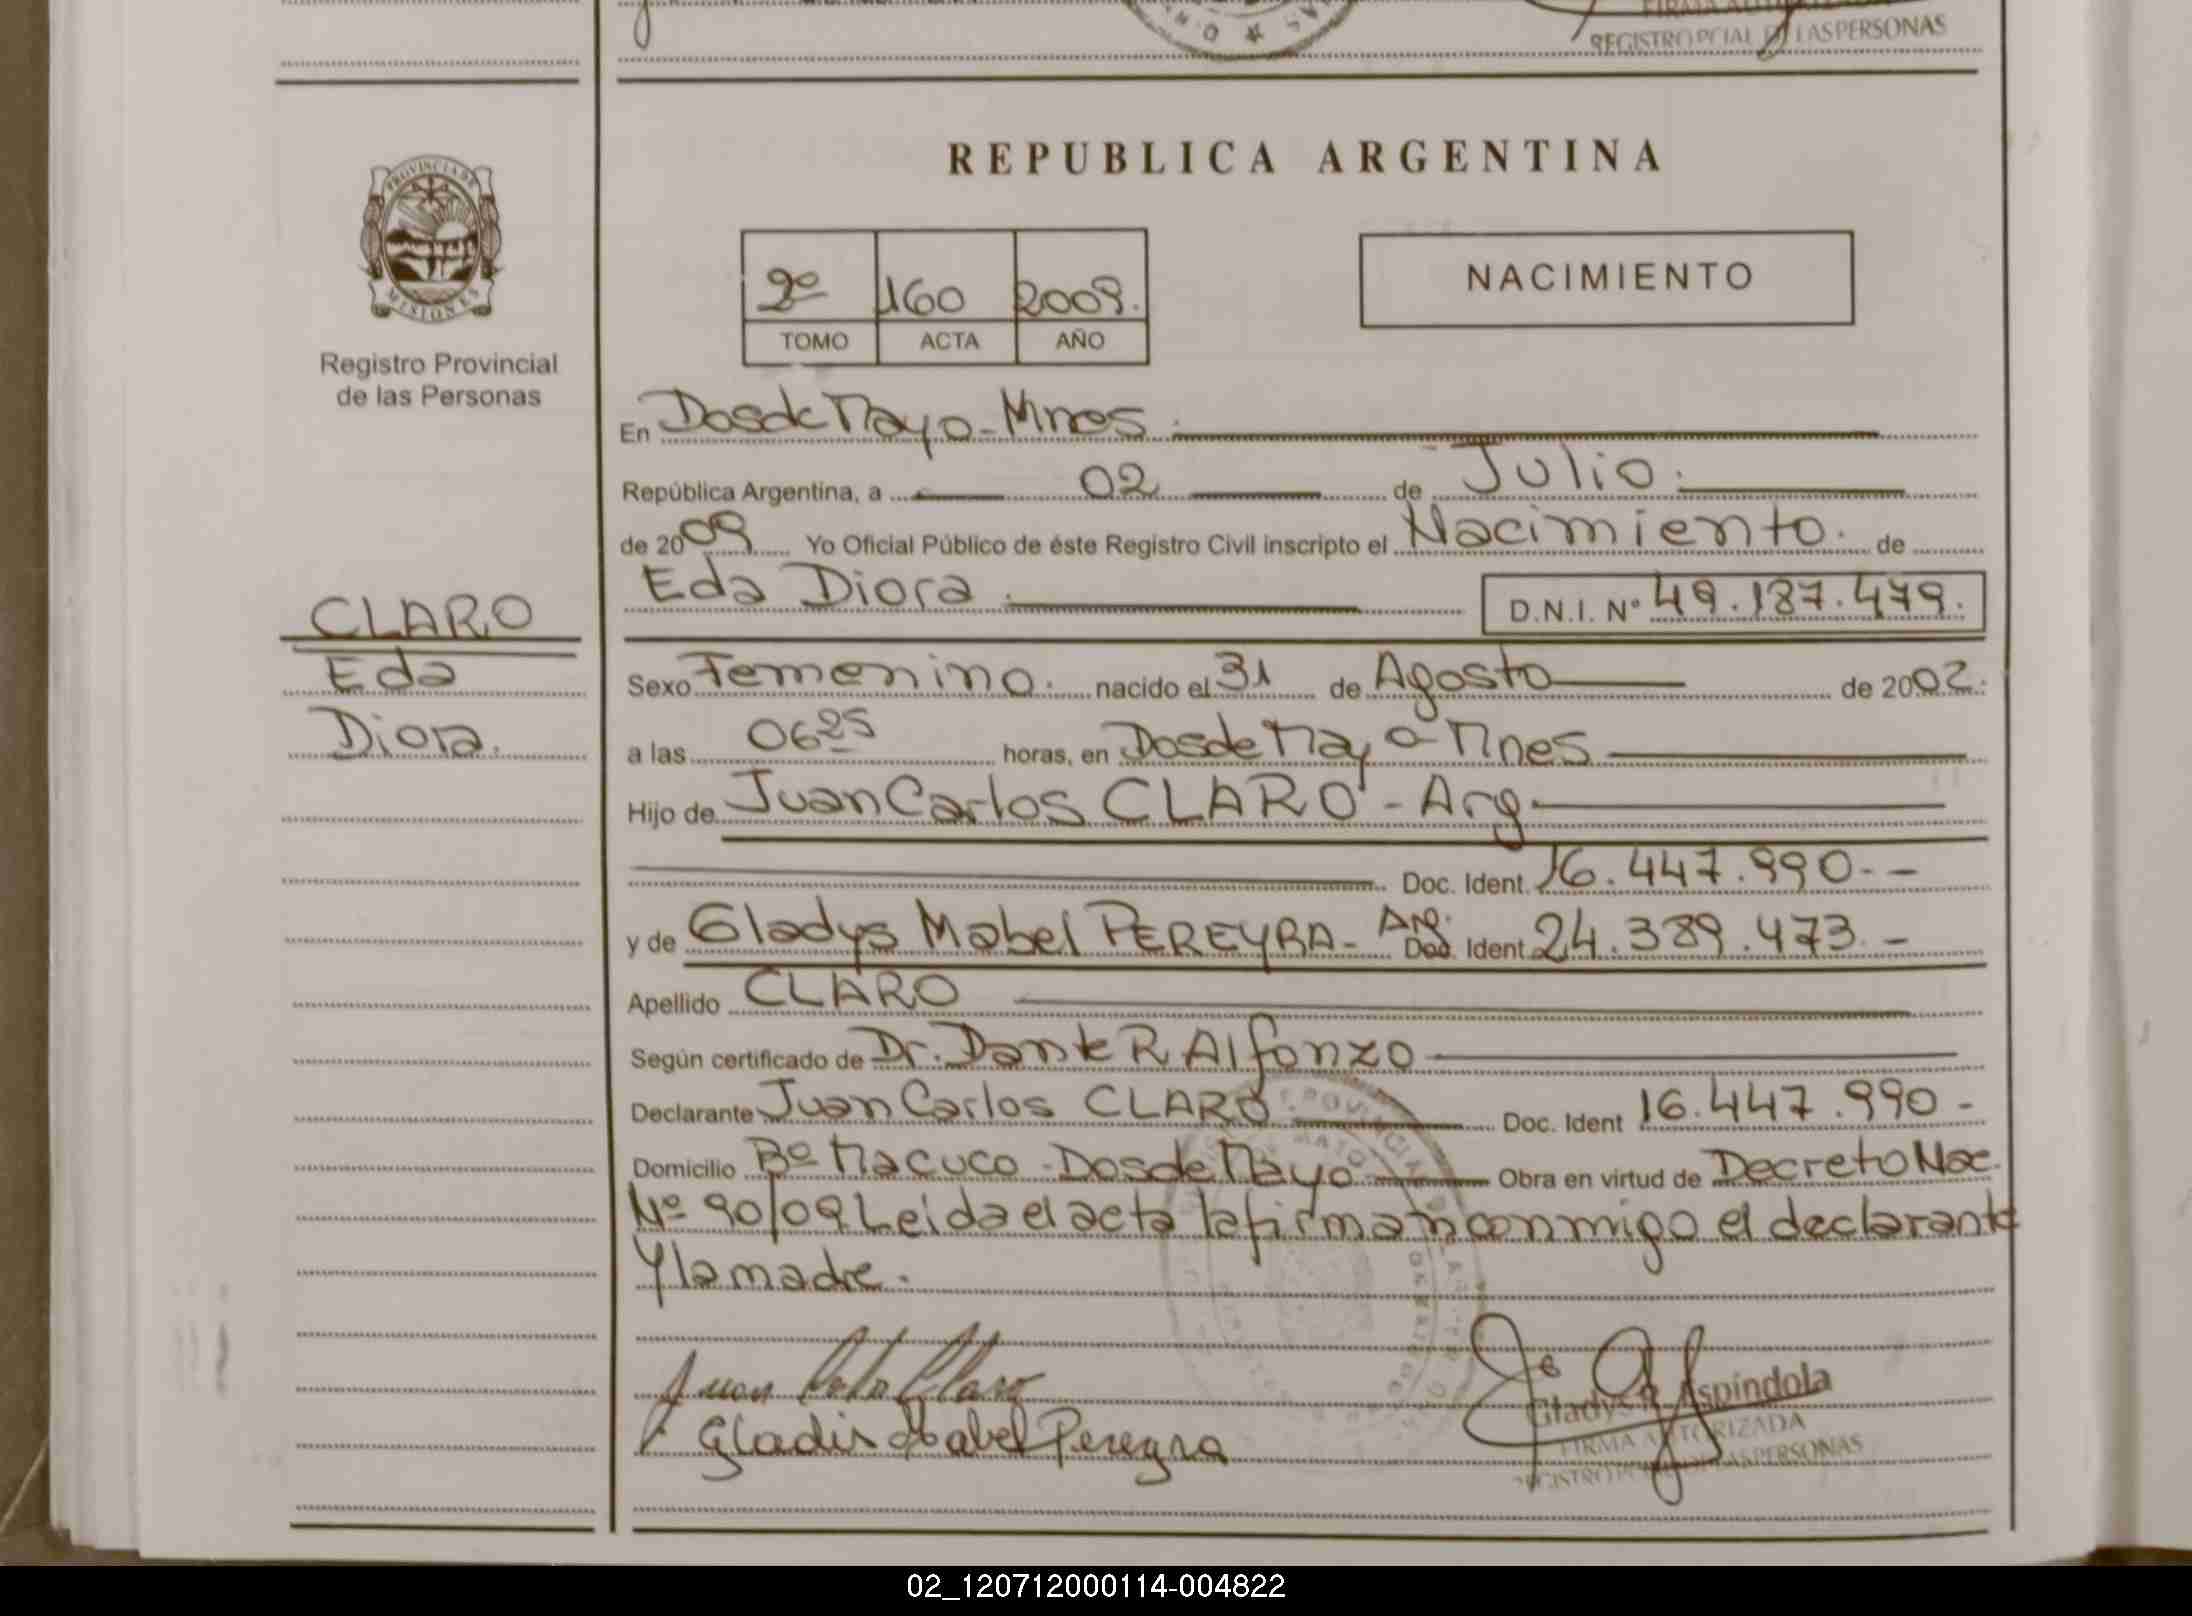 REGISTRO PCIAL DE LAS PERSONAS
REPUBLICA ARGENTINA
PROVINCIA DE
MISIONES
Registro Provincial
de las Personas
2º 160 2009.
TOMO ACTA AÑO
NACIMIENTO
En Dos de Mayo - Mnes.
República Argentina, a 02 de Julio.
de 2009 Yo Oficial Público de éste Registro Civil inscripto el Nacimiento. de
Eda Diora. D.N.I. Nº 49.187.479.
CLARO
Eda
Diora.
Sexo Femenino. nacido el 31 de Agosto de 2002.
a las 06 25 horas, en Dos de Mayo - Mnes
Hijo de Juan Carlos CLARO - Arg
Doc. Ident. 16.447.990 - -
y de Gladys Mabel PEREYRA - Arg. Doc. Ident. 24.389.473. -
Apellido CLARO
Según certificado de Dr. Dante R Alfonzo
Declarante Juan Carlos CLARO Doc. Ident 16.447.990 -
Domicilio Bº Macuco - Dos de Mayo Obra en virtud de Decreto Nac.
Nº 90/09 Leida el acta la firman conmigo el declarante
Y la madre.
Juan Carlos Claro
Gladis Mabel Pereyra
Gladys R. Aspíndola
FIRMA AUTORIZADA
REGISTRO PCIAL DE LAS PERSONAS
02_120712000114-004822